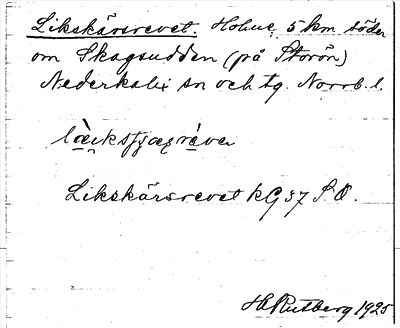 Likskärsrevet. Holme, 5 km söder
om Skagsudden (på Storön)
Nederkalix sn och tg. Norrb. l.
Likskärsrevet kG 37 S.O.
H Rutberg 1925